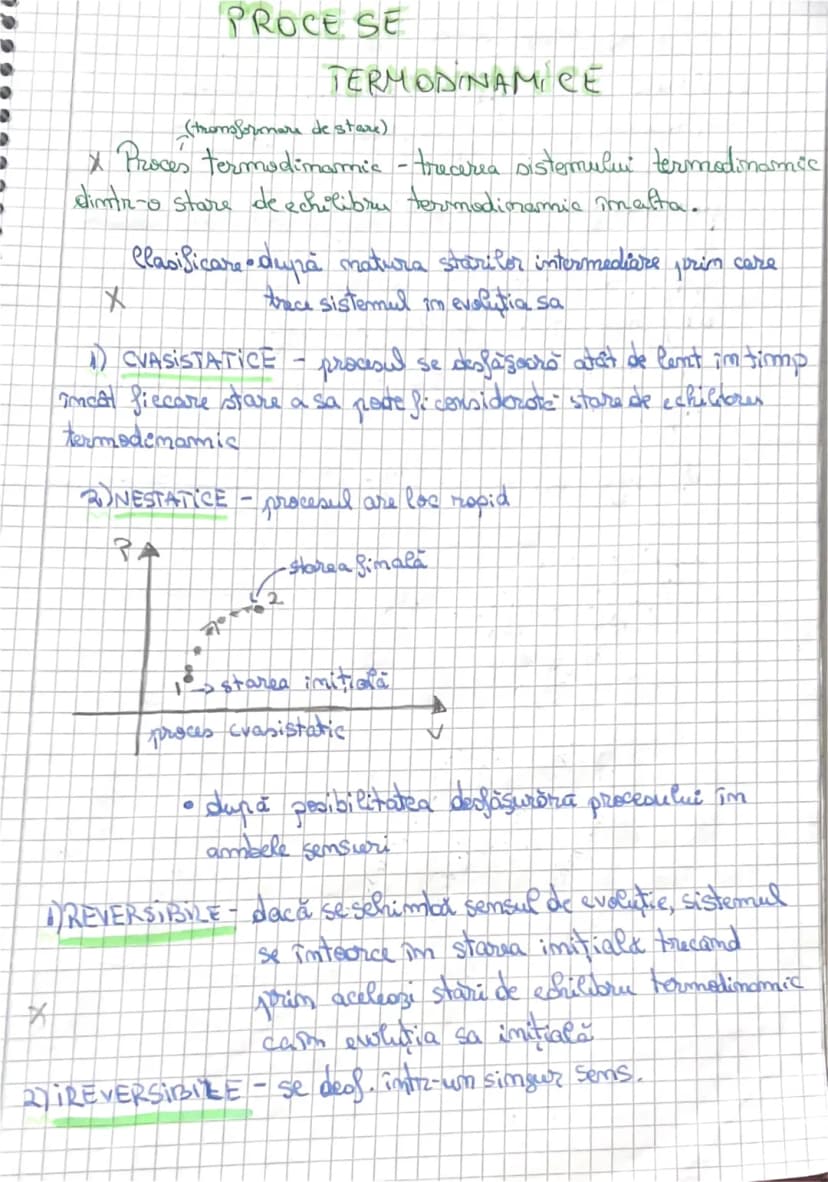 PROCESE
TERMODINAMICE
(transformare de stare)
x Proces termodinamic - trecerea sistemului termodinamic
dintr-o stare de echilibru termodinamic în alta.
Clasificare • după natura stărilor intermediare prin care
x trece sistemul în evoluția sa
1) CVASISTATICE - procesul se desfășoară atât de lent în timp
încât fiecare stare a sa poate fi considerată stare de echilibru
termodinamic
2) NESTATICE - procesul are loc rapid
P
starea finală
2
1 → starea inițială
proces cvasistatic V
• după posibilitatea desfășurăra procesului în
ambele sensuri
1) REVERSIBILE - dacă se schimbă sensul de evoluție, sistemul
se întoarce în starea inițială trecând
prin aceleași stări de echilibru termodinamic
x
ca în evoluția sa inițială
2) IREVERSIBILE - se desf. într-un singur sens.